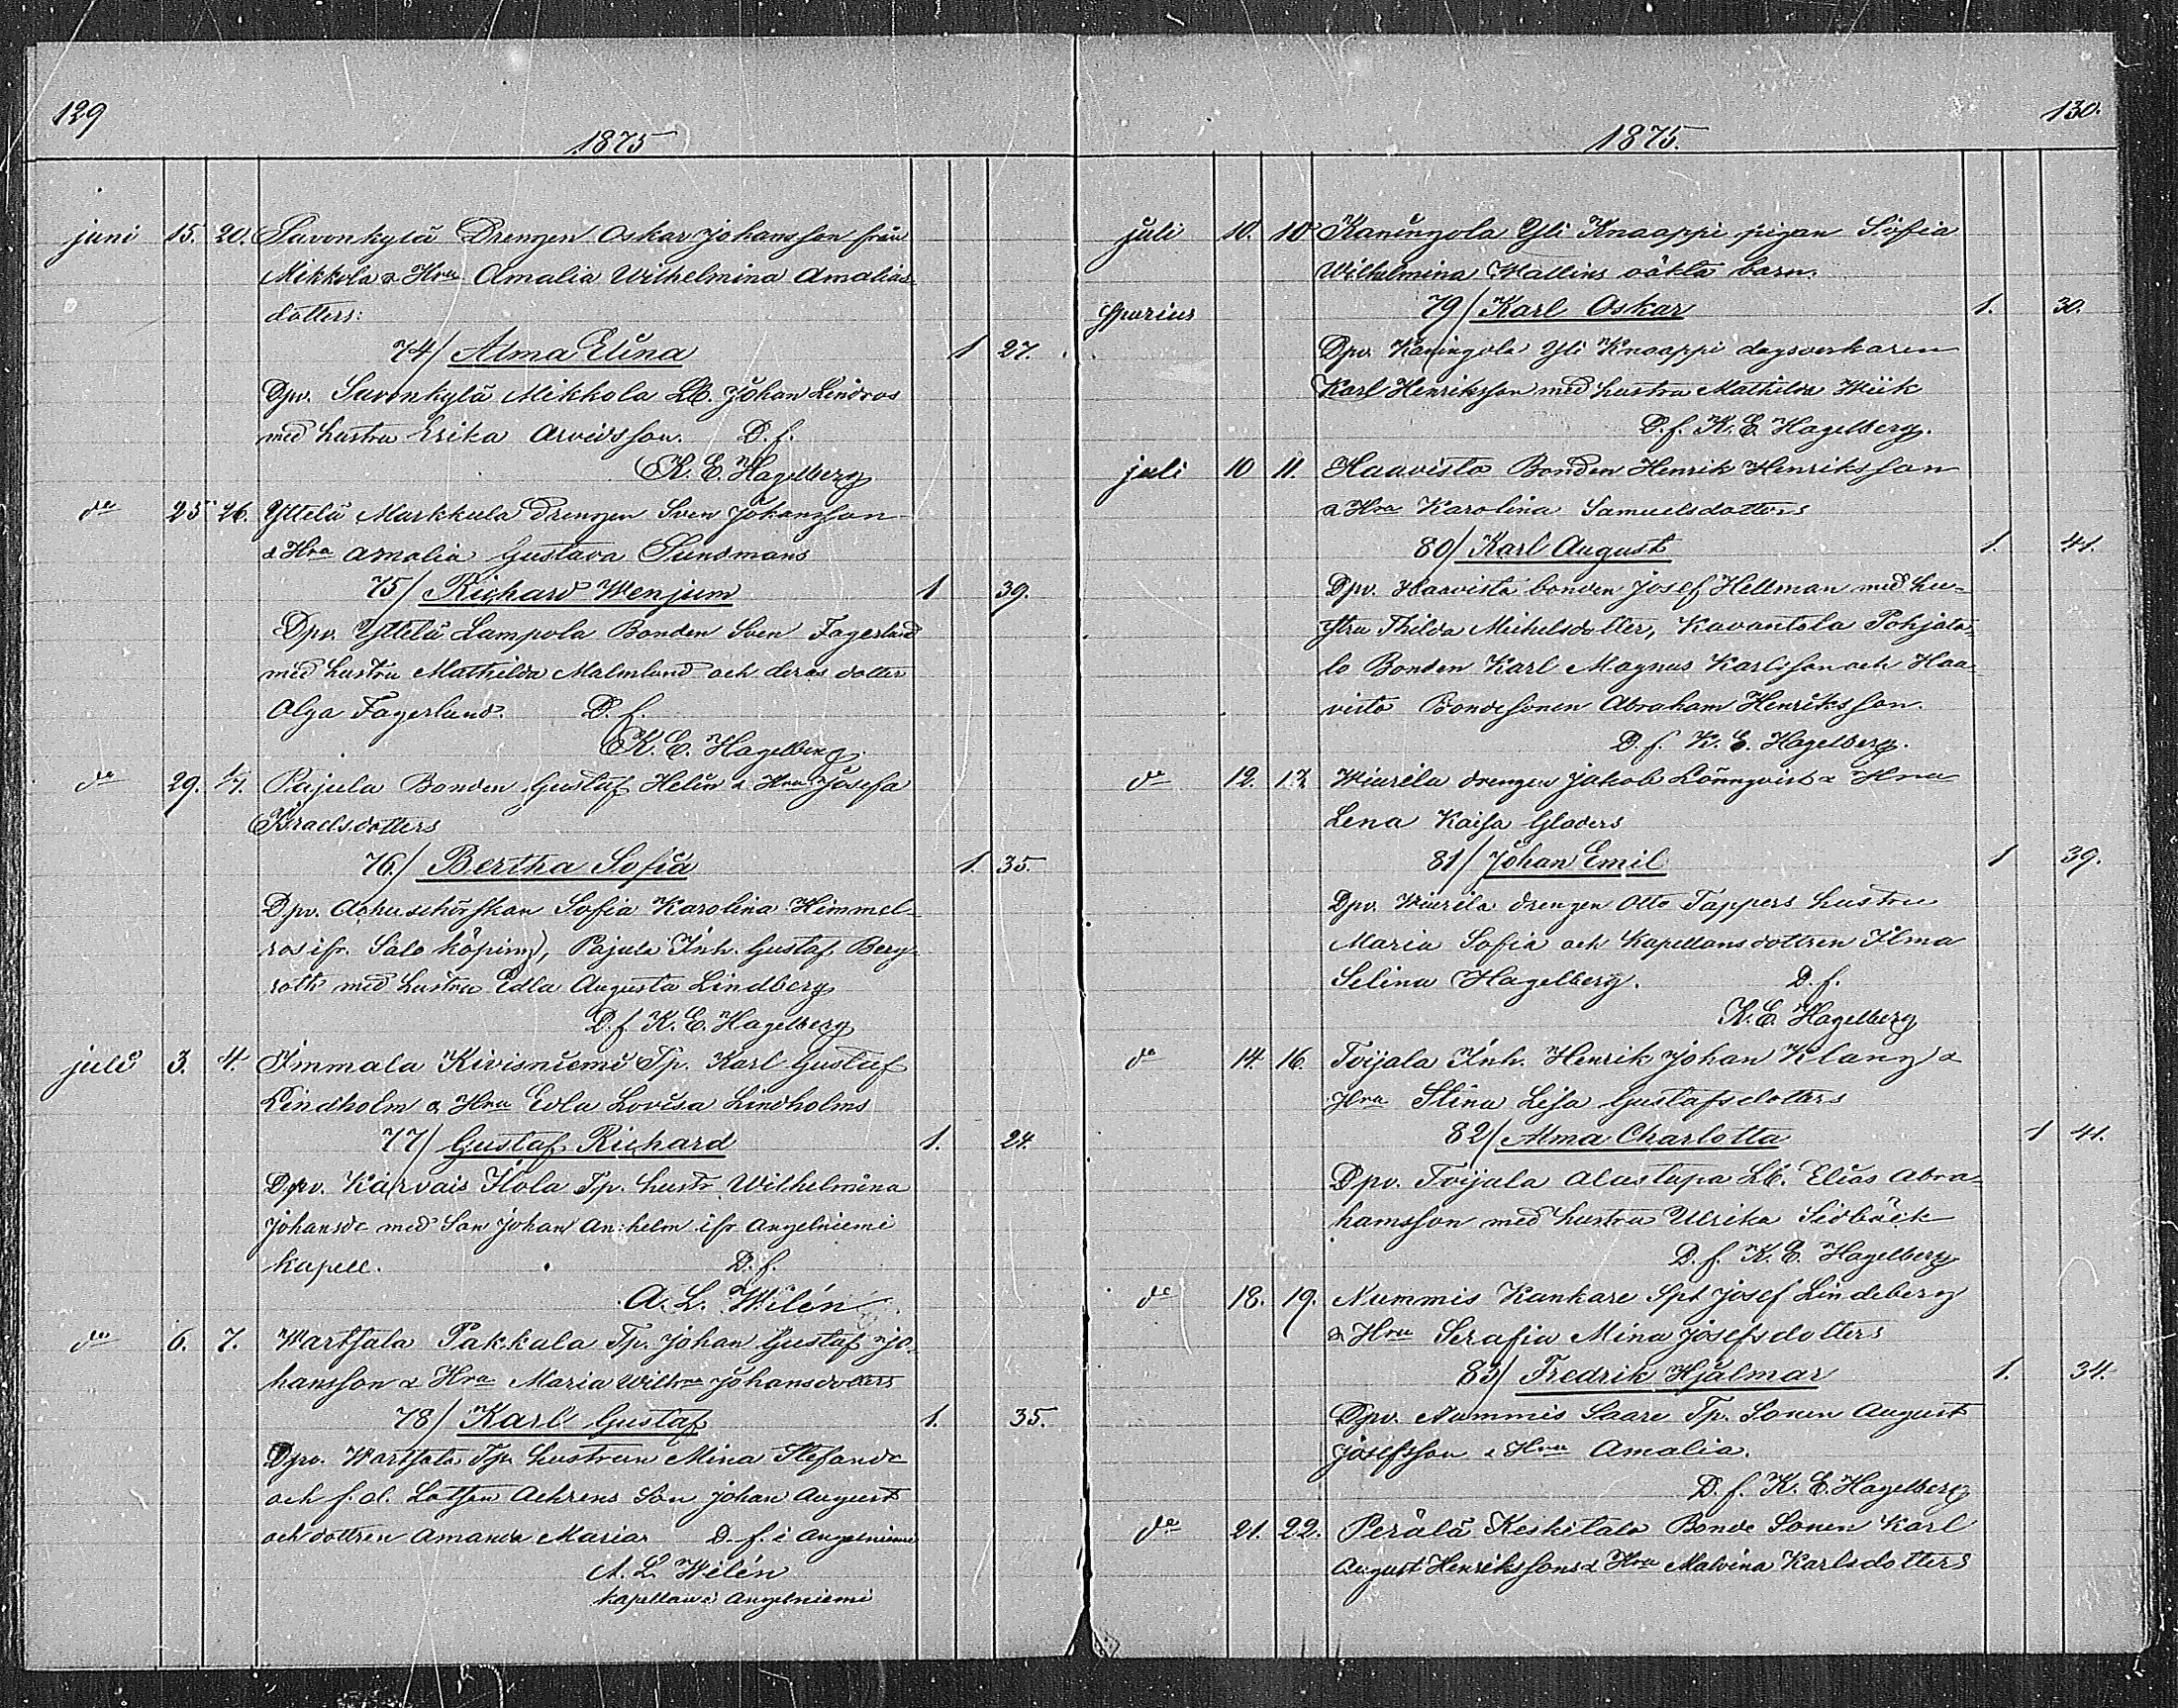 129
1875
juni 15. 20. Savonkylä Drengen Oskar Johansson från
Mikkola & Hru Amalia Wilhelmina Amalias-
dotters:
74/ Alma Elina 1 27.
Dpv. Savonkylä Mikkola LB. Johan Lindros
med hustru Erika Arvidsson. D. f.
K. E. Hagelberg
do 25 26. Yttelä Markkula Drengen Sven Johansson
& Hra Amalia Gustava Sundmans
75/ Richard Wenjum 1 39.
Dpv. Yttelä Lampola Bonden Sven Fagerlund
med hustru Mathilda Malmlund och deras dotter
Olga Fagerlund. D. f.
K. E. Hagelberg.
do 29. 1/7. Pajula Bonden Gustaf Helin & Hru Josefa
Israelsdotters
76./ Bertha Sofia 1. 35.
Dpv. Sofia Karolina Himmel-
ros ifr. Salo köping, Pajula Inh. Gustaf Berg-
roth med hustru Edla Augusta Lindberg
D. f K. E. Hagelberg
juli 3. 4. Immala Kivisniemi Tp. Karl Gustaf
Lindholm & Hru Edla Lovisa Lindholms
77/ Gustaf Richard 1. 24.
Dpv. Karvais Hola Tp. hustr. Wilhelmina
Johansdr med Son Johan An:helm ifr Angelniemi
kapell. D. f.
A. L. Wilén
do 6. 7. Wartsala Pakkala Tp. Johan Gustaf Jo-
hansson & Hra Maria Wilhna Johansdotters
78/ Karl Gustaf 1. 35.
Dpv. Wartsala Tp. hustrun Mina Stefandr
och f. d. Lotsen Achrens Son Johan August
och dottren Amanda Maria. D. f. i Angelniemi
A. L. Wilén
kapellan i Angelniemi
130.
1875.
juli 10. 10 Kaningola Yli Knaappi pigan Sofia
Wilhelmina Wallins oäkta barn.
spurius 79/ Karl Oskar 1. 30.
Dpv. Kaningola Yli Knaappi dagsverkaren
Karl Henriksson med hustru Mathilda Wiik
D. f. K. E. Hagelberg.
juli 10 11. Haavisto Bonden Henrik Henriksson
& Hra Karolina Samuelsdotters
80/ Karl August 1. 41.
Dpv. Haavisto bonden Josef Hellman med hu-
stru Thilda Michelsdotter, Kavantola Pohjata-
lo Bonden Karl Magnus Karlsson och Haa-
visto Bondesonen Abraham Henriksson.
D. f. K. E. Hagelberg.
do 12. 13 Wiurila drengen Jakob Lönnqvist & Hru
Lena Kaisa Gladers
81/ Johan Emil 1 39.
Dpv. Wiurila drengen Otto Tappers hustru
Maria Sofia och Kapellans dottren Ilma
Selina Hagelberg. D. f.
K. E. Hagelberg
do 14. 16. Toijala Inh. Henrik Johan Klang &
Hra Stina Lisa Gustafsdotters
82/ Alma Charlotta 1 41.
Dpv. Toijala Alastupa LB. Elias Abra-
hamsson med hustru Ulrika Sidbäck
D. f. K. E. Hagelberg
do 18. 19. Nummis Kankare Spt Josef Lindeberg
& Hru Serafia Mina Josefsdotters
83/ Fredrik Hjalmar 1. 34.
Dpv. Nummis Saare Tp. Sonen August
Josefsson & Hru Amalia.
D. f. K. E. Hagelberg
do 21. 22. Perälä Keskitalo Bonde Sonen Karl
August Henrikssons & Hru Malvina Karlsdotters